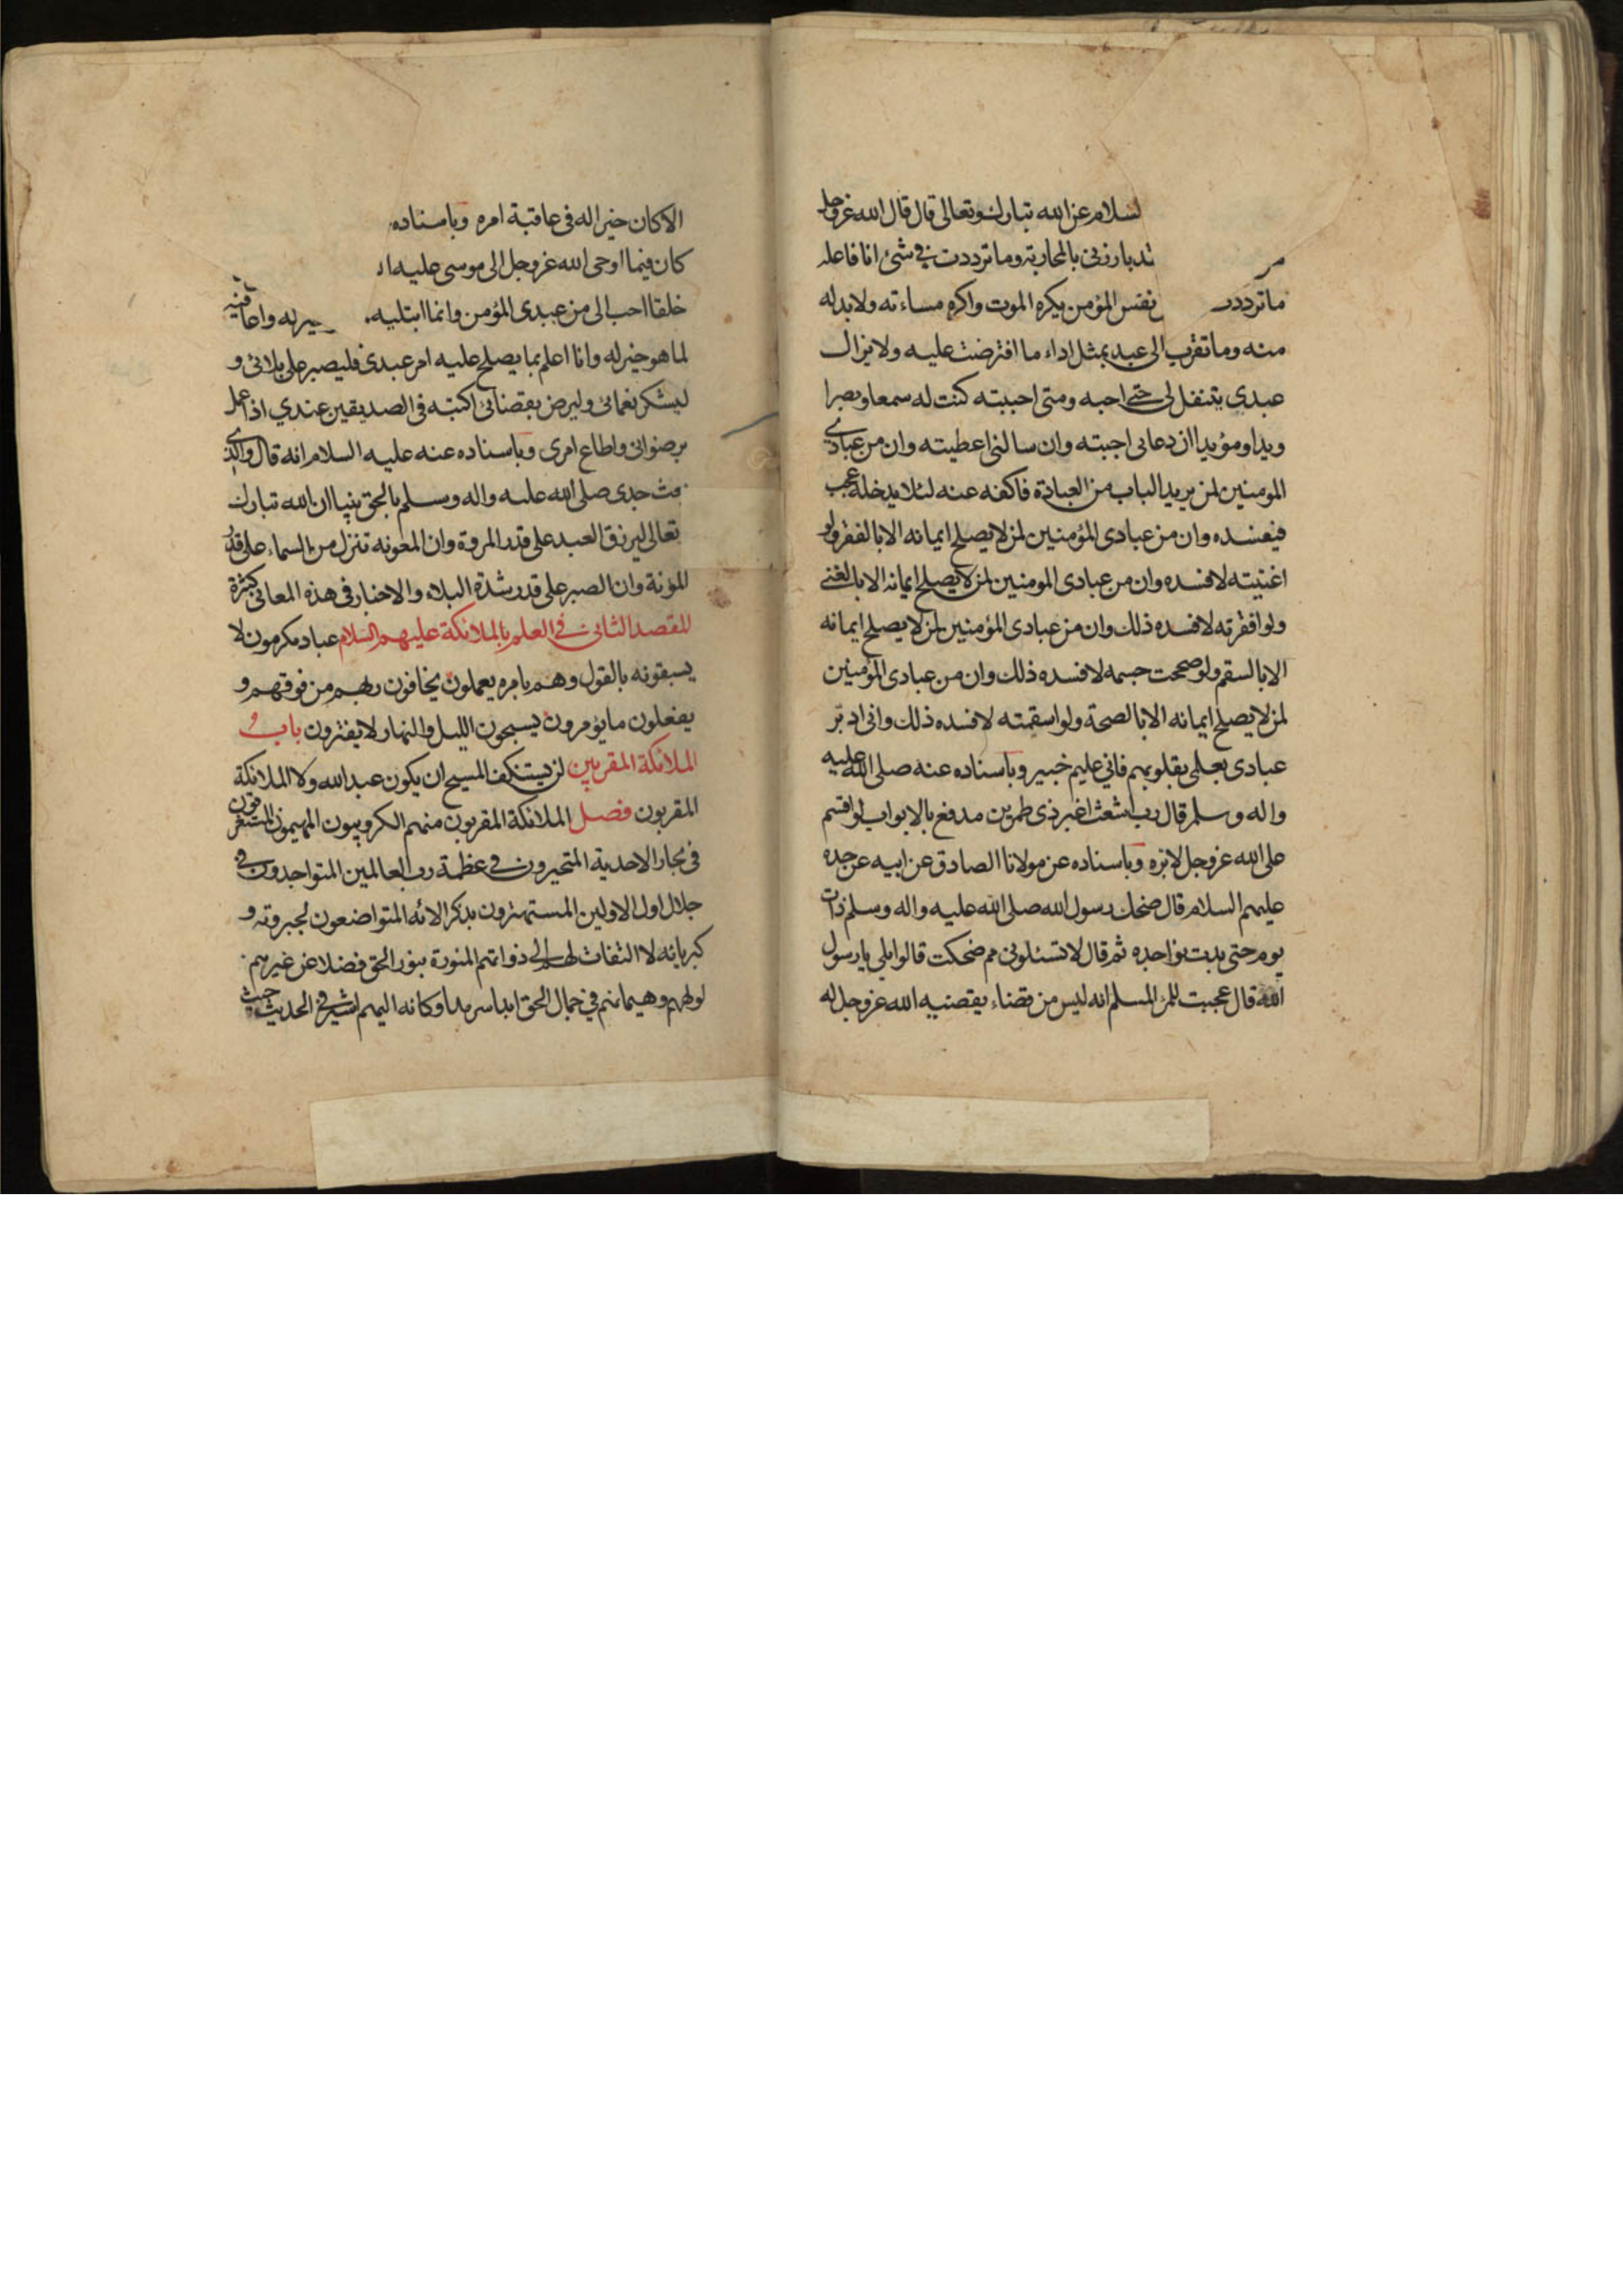 لسلام عن الله تبارك وتعالى قال قال الله عزوجل
بارزنى بالمحاربة وما ترددت فى شئ انا فاعله
ما ترددت نفس المؤمن يكره الموت واكره مساءته ولا بد له
منه وما تقرب الى عبد بمثل اداء ما افترضت عليه ولا يزال
عبدى يتنفل لى حتى احبه ومتى احببته كنت له سمعا وبصرا
ويدا ومؤيدا ان دعانى اجبته وان سالنى اعطيته وان من عبادى
المومنين لمن يريد الباب من العبادة فاكفه عنه لئلا يدخله عجب
فيفسده وان من عبادى المؤمنين لمن لا يصلح ايمانه الا بالفقر ولو
اغنيته لافسده وان من عبادى المومنين لمن لا يصلح ايمانه الا بالغنى
ولو افقرته لافسده ذلك وان من عبادى المؤمنين لمن لا يصلح ايمانه
الا بالسقم ولو صححت جسمه لافسده ذلك وان من عبادى المؤمنين
لمن لا يصلح ايمانه الا بالصحة ولو اسقمته لافسده ذلك وانى ادبّر
عبادى بعلمى بقلوبهم فانى عليم خبير وباسناده عنه صلى الله عليه
واله وسلم قال رب اشعث اغبر ذى طمرين مدفع بالابواب لو اقسم
على الله عزوجل لابره وباسناده عن مولانا الصادق عن ابيه عن جده
عليهم السلام قال ضحك رسول الله صلى الله عليه واله وسلم ذات
يوم حتى بدت نواجده ثم قال لا تسئلونى مم ضحكت قالوا بلى يا رسول
الله قال عجبت للمرء المسلم انه ليس من قضاء يقضيه الله عزوجل له
الا كان خيرا له فى عاقبة امره وباسناده
كان فيما اوحى الله عزوجل الى موسى عليه ا
خلقا احب الى من عبدى المؤمن وانما ابتليه له واعافيه
لما هو خير له وانا اعلم بما يصلح عليه امر عبدى فليصبر على بلائى و
ليشكر نعمائى وليرض بقضائى اكتبه فى الصديقين عندي اذا عمل
برضوانى واطاع امرى وباسناده عنه عليه السلام انه قال والذى
بعث جدى صلى الله عليه واله وسلم بالحق نبيا ان الله تبارك
تعالى ليرزق العبد على قدر المروة وان المعونه تنزل من السماء على قدر
المؤنة وان الصبر على قدر شدة البلاء والاخبار فى هذه المعانى كثيرة
المقصد الثانى فى العلم بالملائكة عليهم السلام عباد مكرمون لا
يسبقونه بالقول وهم بامره يعملون يخافون ربهم من فوقهم و
يفعلون ما يؤمرون يسبحون الليل والنهار لا يفترون باب
الملائكة المقربين لن يستنكف المسيح ان يكون عبد الله ولا الملائكة
المقربون فصل الملائكة المقربون منهم الكروبيون المهيمون المستغرقون
فى بحار الاحدية المتحيرون فى عظمة رب العالمين المتواجدون فى
جلال اول الاولين المستهترون بذكر الائه المتواضعون لجبروته و
كبريائه لا التفات لهم الى ذواتهم المنورة بنور الحق فضلا عن غيرهم
لولههم وهيمانهم فى جمال الحق ابدا سرمدا وكانه اليهم اشير فى الحديث حيث